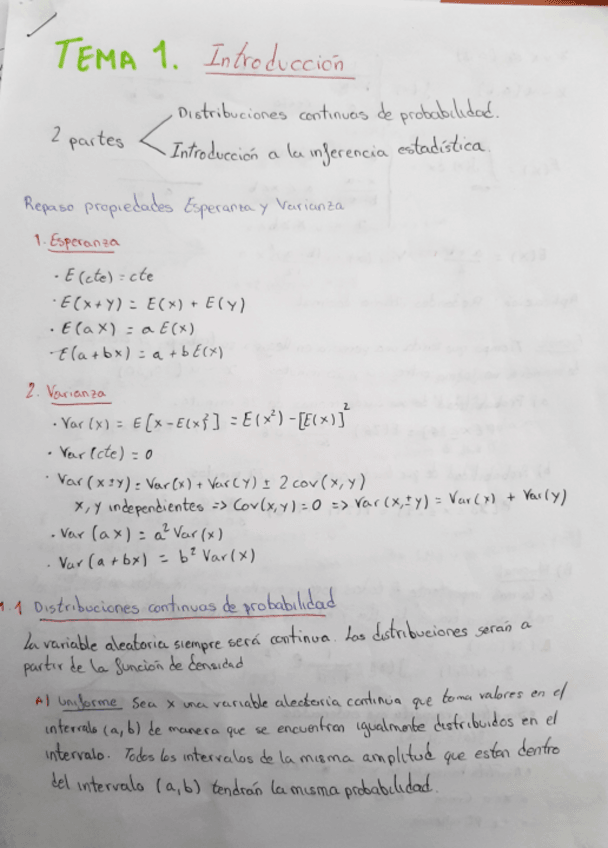 TEMA 1. Introducción
2 partes
Distribuciones continuas de probabilidad.
Introducción a la inferencia estadística.
Repaso propiedades Esperanza y Varianza
1. Esperanza
· E(cte) = cte
· E(x+y) = E(x) + E(y)
· E(ax) = a E(x)
· E(a+bx) = a + b E(x)
2. Varianza
· Var(x) = E[x-E(x)²] = E(x²) - [E(x)]²
· Var(cte) = 0
· Var(x±y) = Var(x) + Var(y) ± 2 cov(x,y)
x, y independientes => Cov(x,y) = 0 => Var(x,±y) = Var(x) + Var(y)
· Var(ax) = a² Var(x)
· Var(a+bx) = b² Var(x)
1.1 Distribuciones continuas de probabilidad
La variable aleatoria siempre será continua. Las distribuciones serán a
partir de la función de densidad
A) Uniforme Sea x una variable aleatoria continua que toma valores en el
intervalo (a,b) de manera que se encuentran igualmente distribuidos en el
intervalo. Todos los intervalos de la misma amplitud que estan dentro
del intervalo (a,b) tendrán la misma probabilidad.